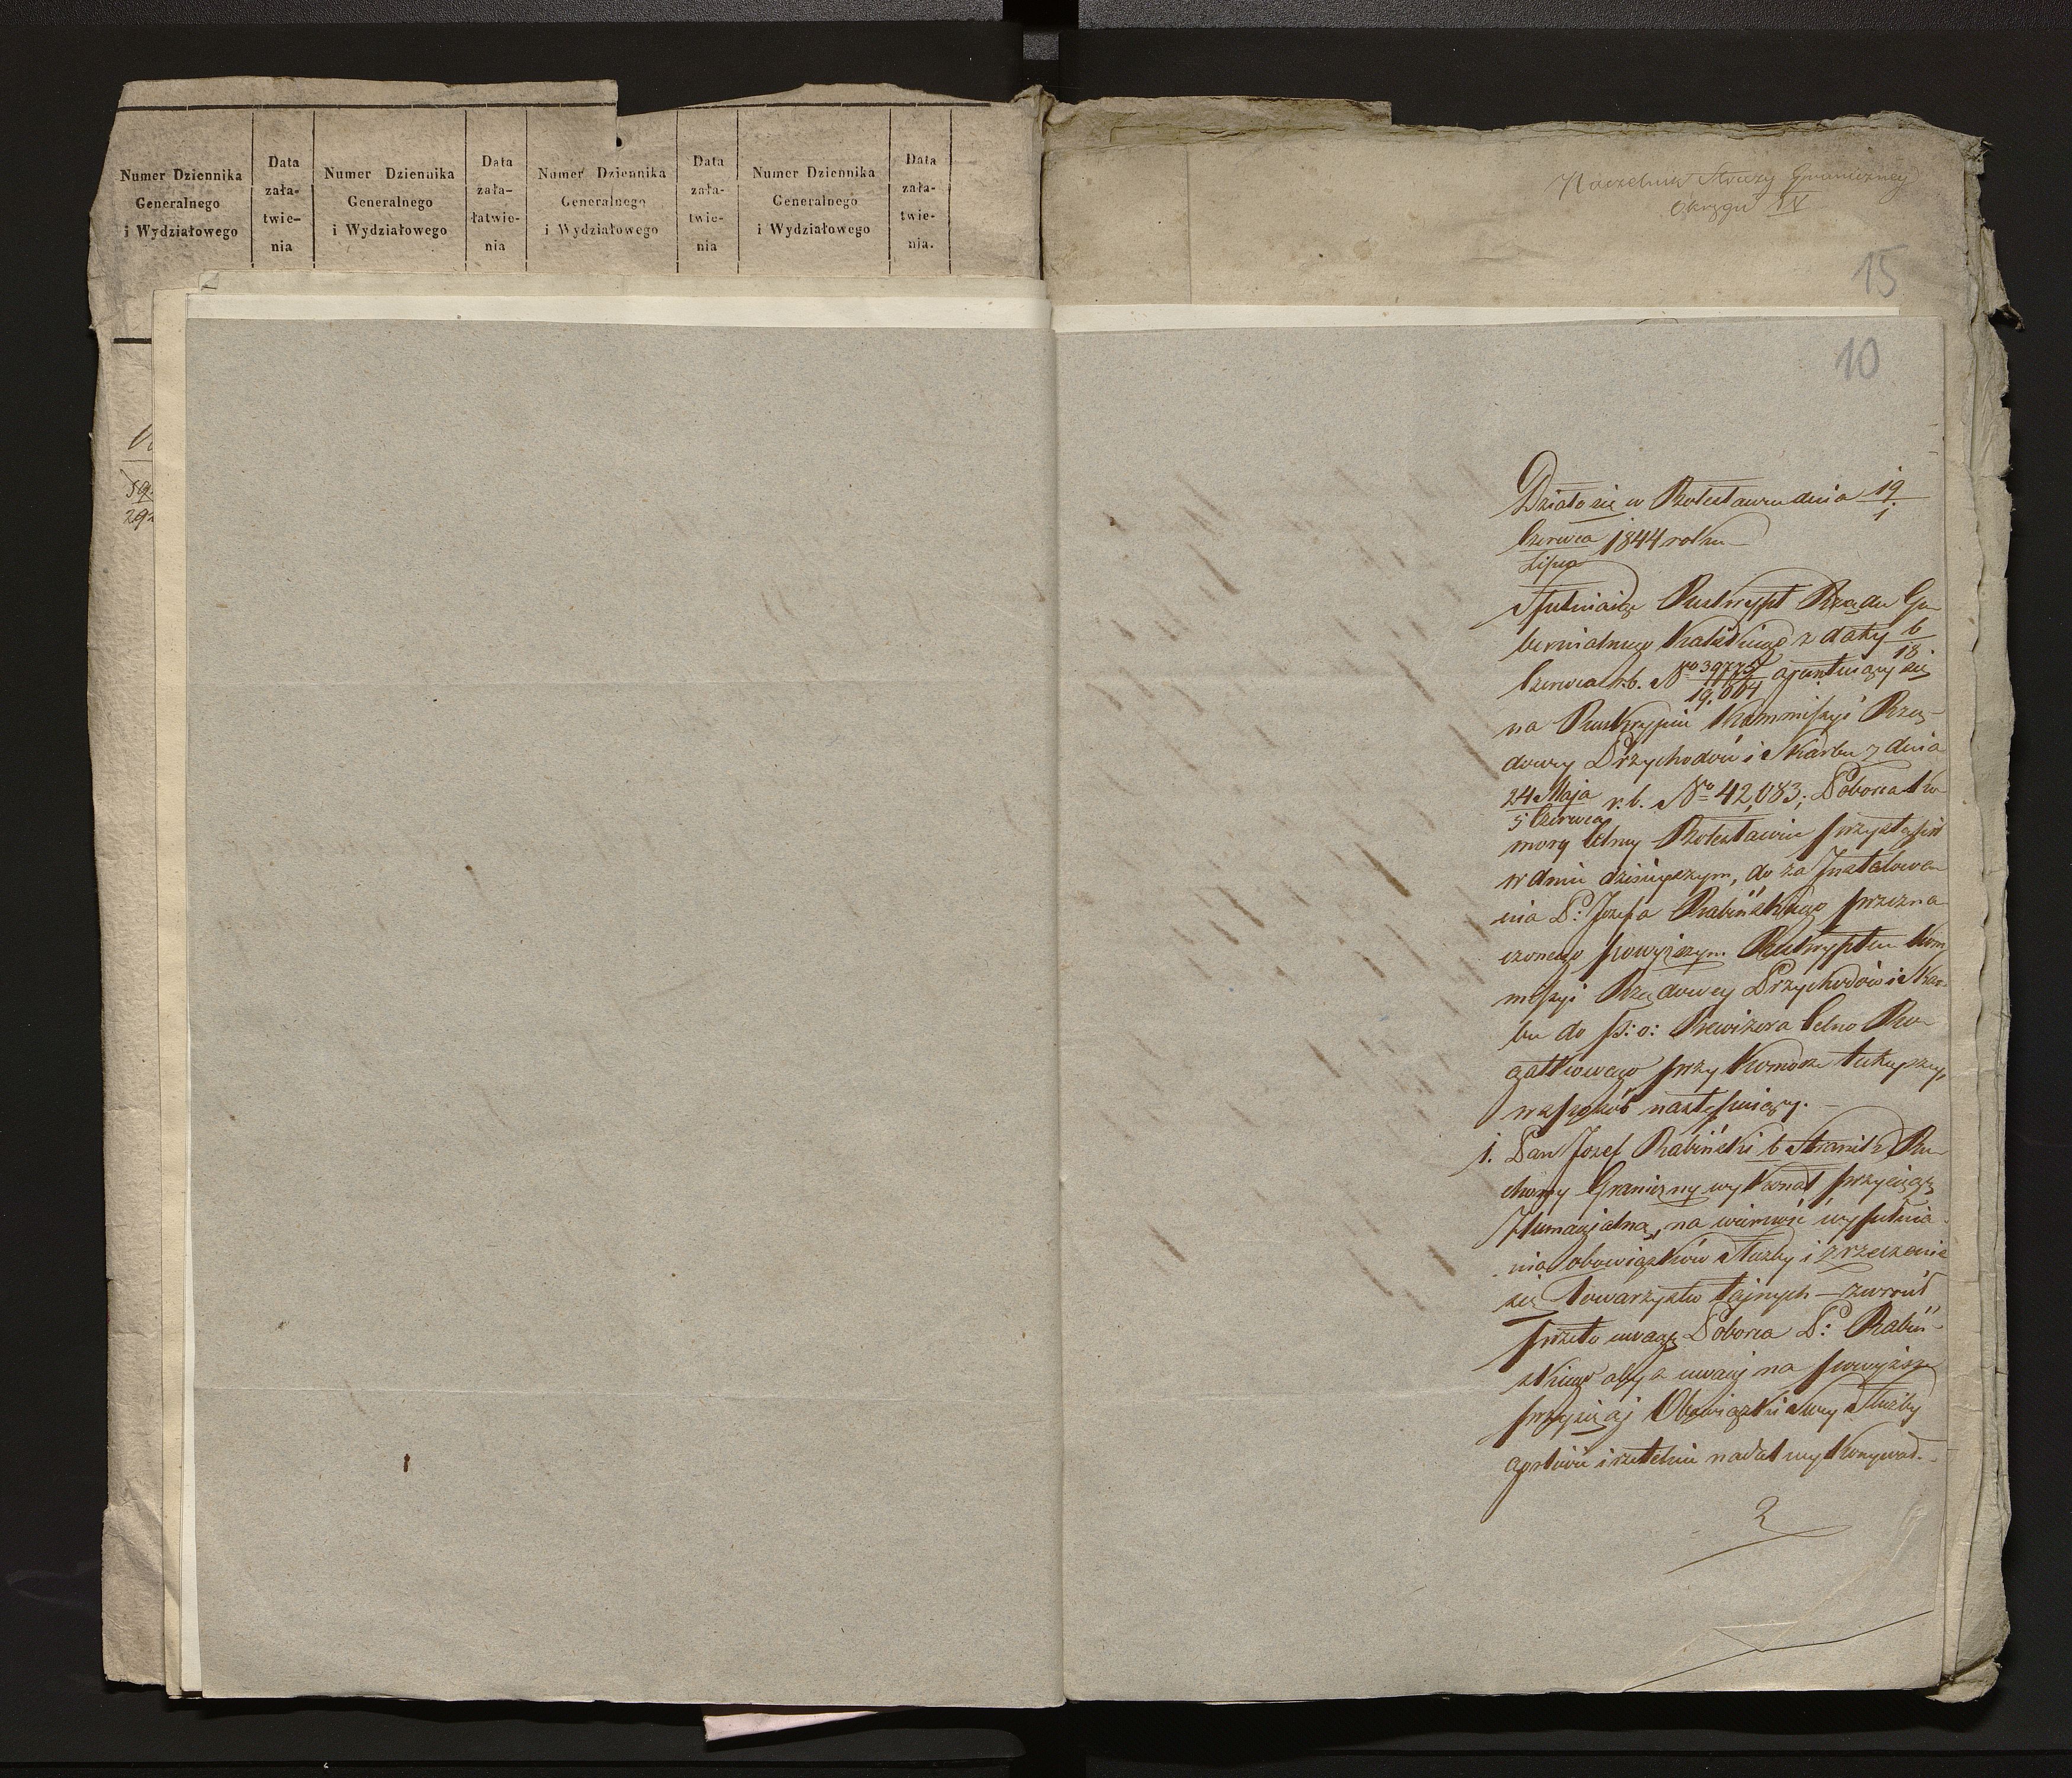 Numer Dziennika
Generalnego
i Wydziałowego
Data
zała-
twie-
nia
Numer Dziennika
Generalnego
i Wydziałowego
Data
zała-
łatwie-
nia
Numer Dziennika
Generalnego
i Wydziałowego
Data
zała-
twie-
nia
Numer Dziennika
Generalnego
i Wydziałowego
Data
zała-
twie-
nia.
Naczelnik Straży Graniczney
Okręgu IV
15
10
Działo się w Bolesławiu dnia 19/1
Czerwca/Lipca 1844 roku
Spełniaiąc Reskrypt Rządu Gu
bernialnego Kaliskiego z daty 6/18
Czerwca r.b. No 39775/19,004 gruntuiący się
na Reskrypcie Kommissyi Rzą-
dowey Przychodów i Skarbu z dnia
24 Maja/5 Czerwca r.b. No 42,083; Poborca Ko
mory Celney Bolesławiec przystąpił
w dniu dzisieyszym, do za Instalowa
nia P: Jozefa Rabińskiego przezna
czonego powyższym Reskryptem Kom
missyi Rządowey Przychodów i Skar
bu do p: o: Rewizora Celno Ro
gatkowego przy Komorze tuteyszey,
w sposób następuiący.
1. Pan Jozef Rabiński b Strażnik Ru
chomy Graniczny wykonał przysięgę
Homagialną, na wierność wypełnia
nia obowiązków Służby i zrzeczenie
się Towarzystw tajnych – zwrócił
przeto uwagę Poborca P: Rabiń-
skiego aby z uwagi na powyższą
przysięgę Obowiązki Swey Służby
gorliwie i rzetelnie nadal wykonywał.
2